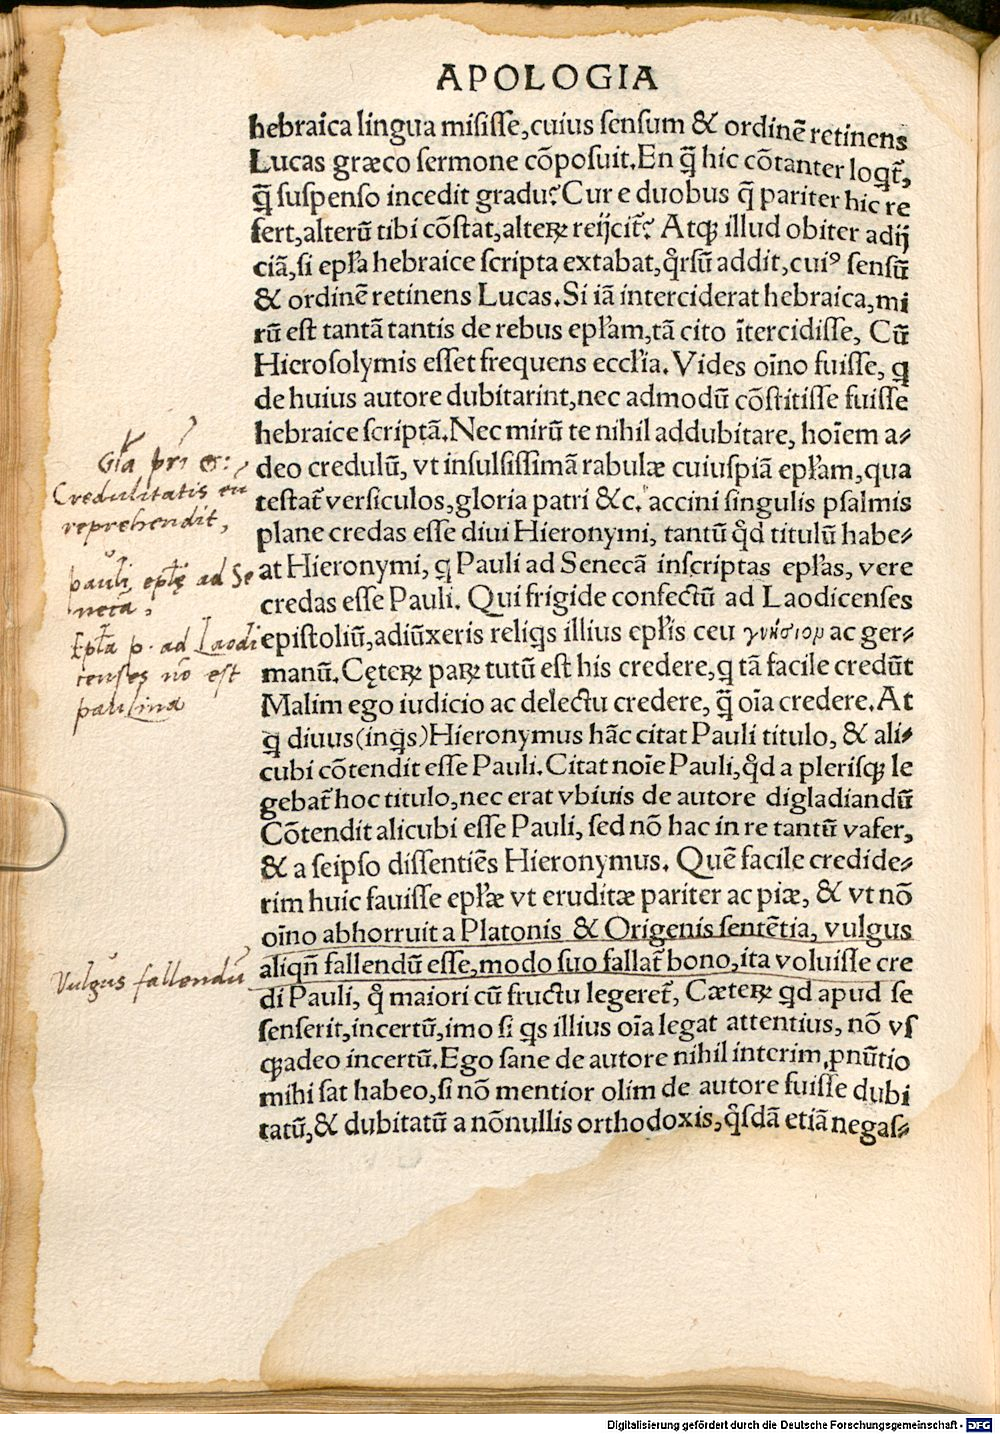 APOLOGIA
hebraica lingua misisse,cuius sensum & ordinē retinens
Lucas græco sermone cōposuit.En q̄ hic cōtanter loqt̄,
q̄ suspenso incedit gradu?Cur e duobus q̄ pariter hic re
fert,alterū tibi cōstat,alteꝝ reijcit̄? Atqꝫ illud obiter adij
ciā,si epl̄a hebraice scripta extabat,qͦrsū addit,cuiꝰ sensū
& ordinē retinens Lucas.Si iā interciderat hebraica,mi
rū est tantā tantis de rebus epl̄am,tā cito ītercidisse, Cū
Hierosolymis esset frequens eccl̄ia. Vides oīno fuisse, q
de huius autore dubitarint,nec admodū cōstitisse fuisse
hebraice scriptā.Nec mirū te nihil addubitare, hoīem a⸗
deo credulū, vt insulsissimā rabulæ cuiuspiā epl̄am, qua
testat̄ versiculos,gloria patri &c. accini singulis psalmis
plane credas esse diui Hieronymi, tantū qͦd titulū habe⸗
at Hieronymi, q Pauli ad Senecā inscriptas epl̄as, vere
credas esse Pauli. Qui frigide confectū ad Laodicenses
epistoliū,adiūxeris reliq̇s illius epl̄is ceu γνήσιον ac ger⸗
manū.Cęteꝝ paꝝ tutū est his credere,q tā facile credūt
Malim ego iudicio ac delectu credere, q̄ oīa credere.At
q diuus(inq̇s)Hieronymus hāc citat Pauli titulo, & ali⸗
cubi cōtendit esse Pauli.Citat noīe Pauli,qͦd a plerisqꝫ le
gebat̄ hoc titulo,nec erat vbiuis de autore digladiandū
Cōtendit alicubi esse Pauli, sed nō hac in re tantū vafer,
& a seipso dissentiēs Hieronymus. Quē facile credide⸗
rim huic fauisse epl̄æ vt eruditæ pariter ac piæ, & vt nō
oīno abhorruit a Platonis & Origenis sentētia, vulgus
aliqn̄ fallendū esse,modo suo fallat̄ bono,ita voluisse cre
di Pauli, qͦ maiori cū fructu legeret̄, Cæteꝝ qd apud se
senserit,incertū,imo si q̇s illius oīa legat attentius, nō vs
qꝫadeo incertū.Ego sane de autore nihil interim ꝓnūtio
mihi sat habeo,si nō mentior olim de autore fuisse dubi
tatū,& dubitatū a nōnullis orthodoxis,q̇sdā etiā negas⸗
Gl̄a pr̄i &:
Credulitatis eū
reprehendit,
pauli epl̄ę ad Se
necā,
Epl̄a p. ad Laodi
censes nō est
paulina
Vulgus fallendū
Digitalisierung gefördert durch die Deutsche Forschungsgemeinschaft - DFG